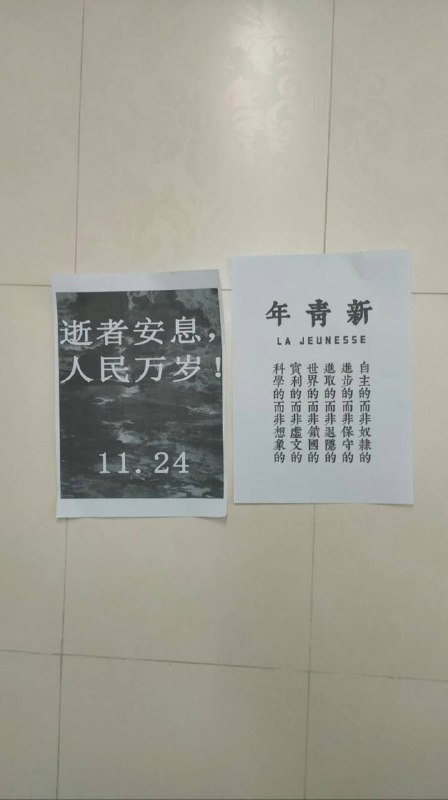 逝者安息，
人民万岁！
11.24
年青新
LA JEUNESSE
自主的而非奴隸的
進步的而非保守的
進取的而非退隱的
世界的而非鎖國的
實利的而非虛文的
科學的而非想象的